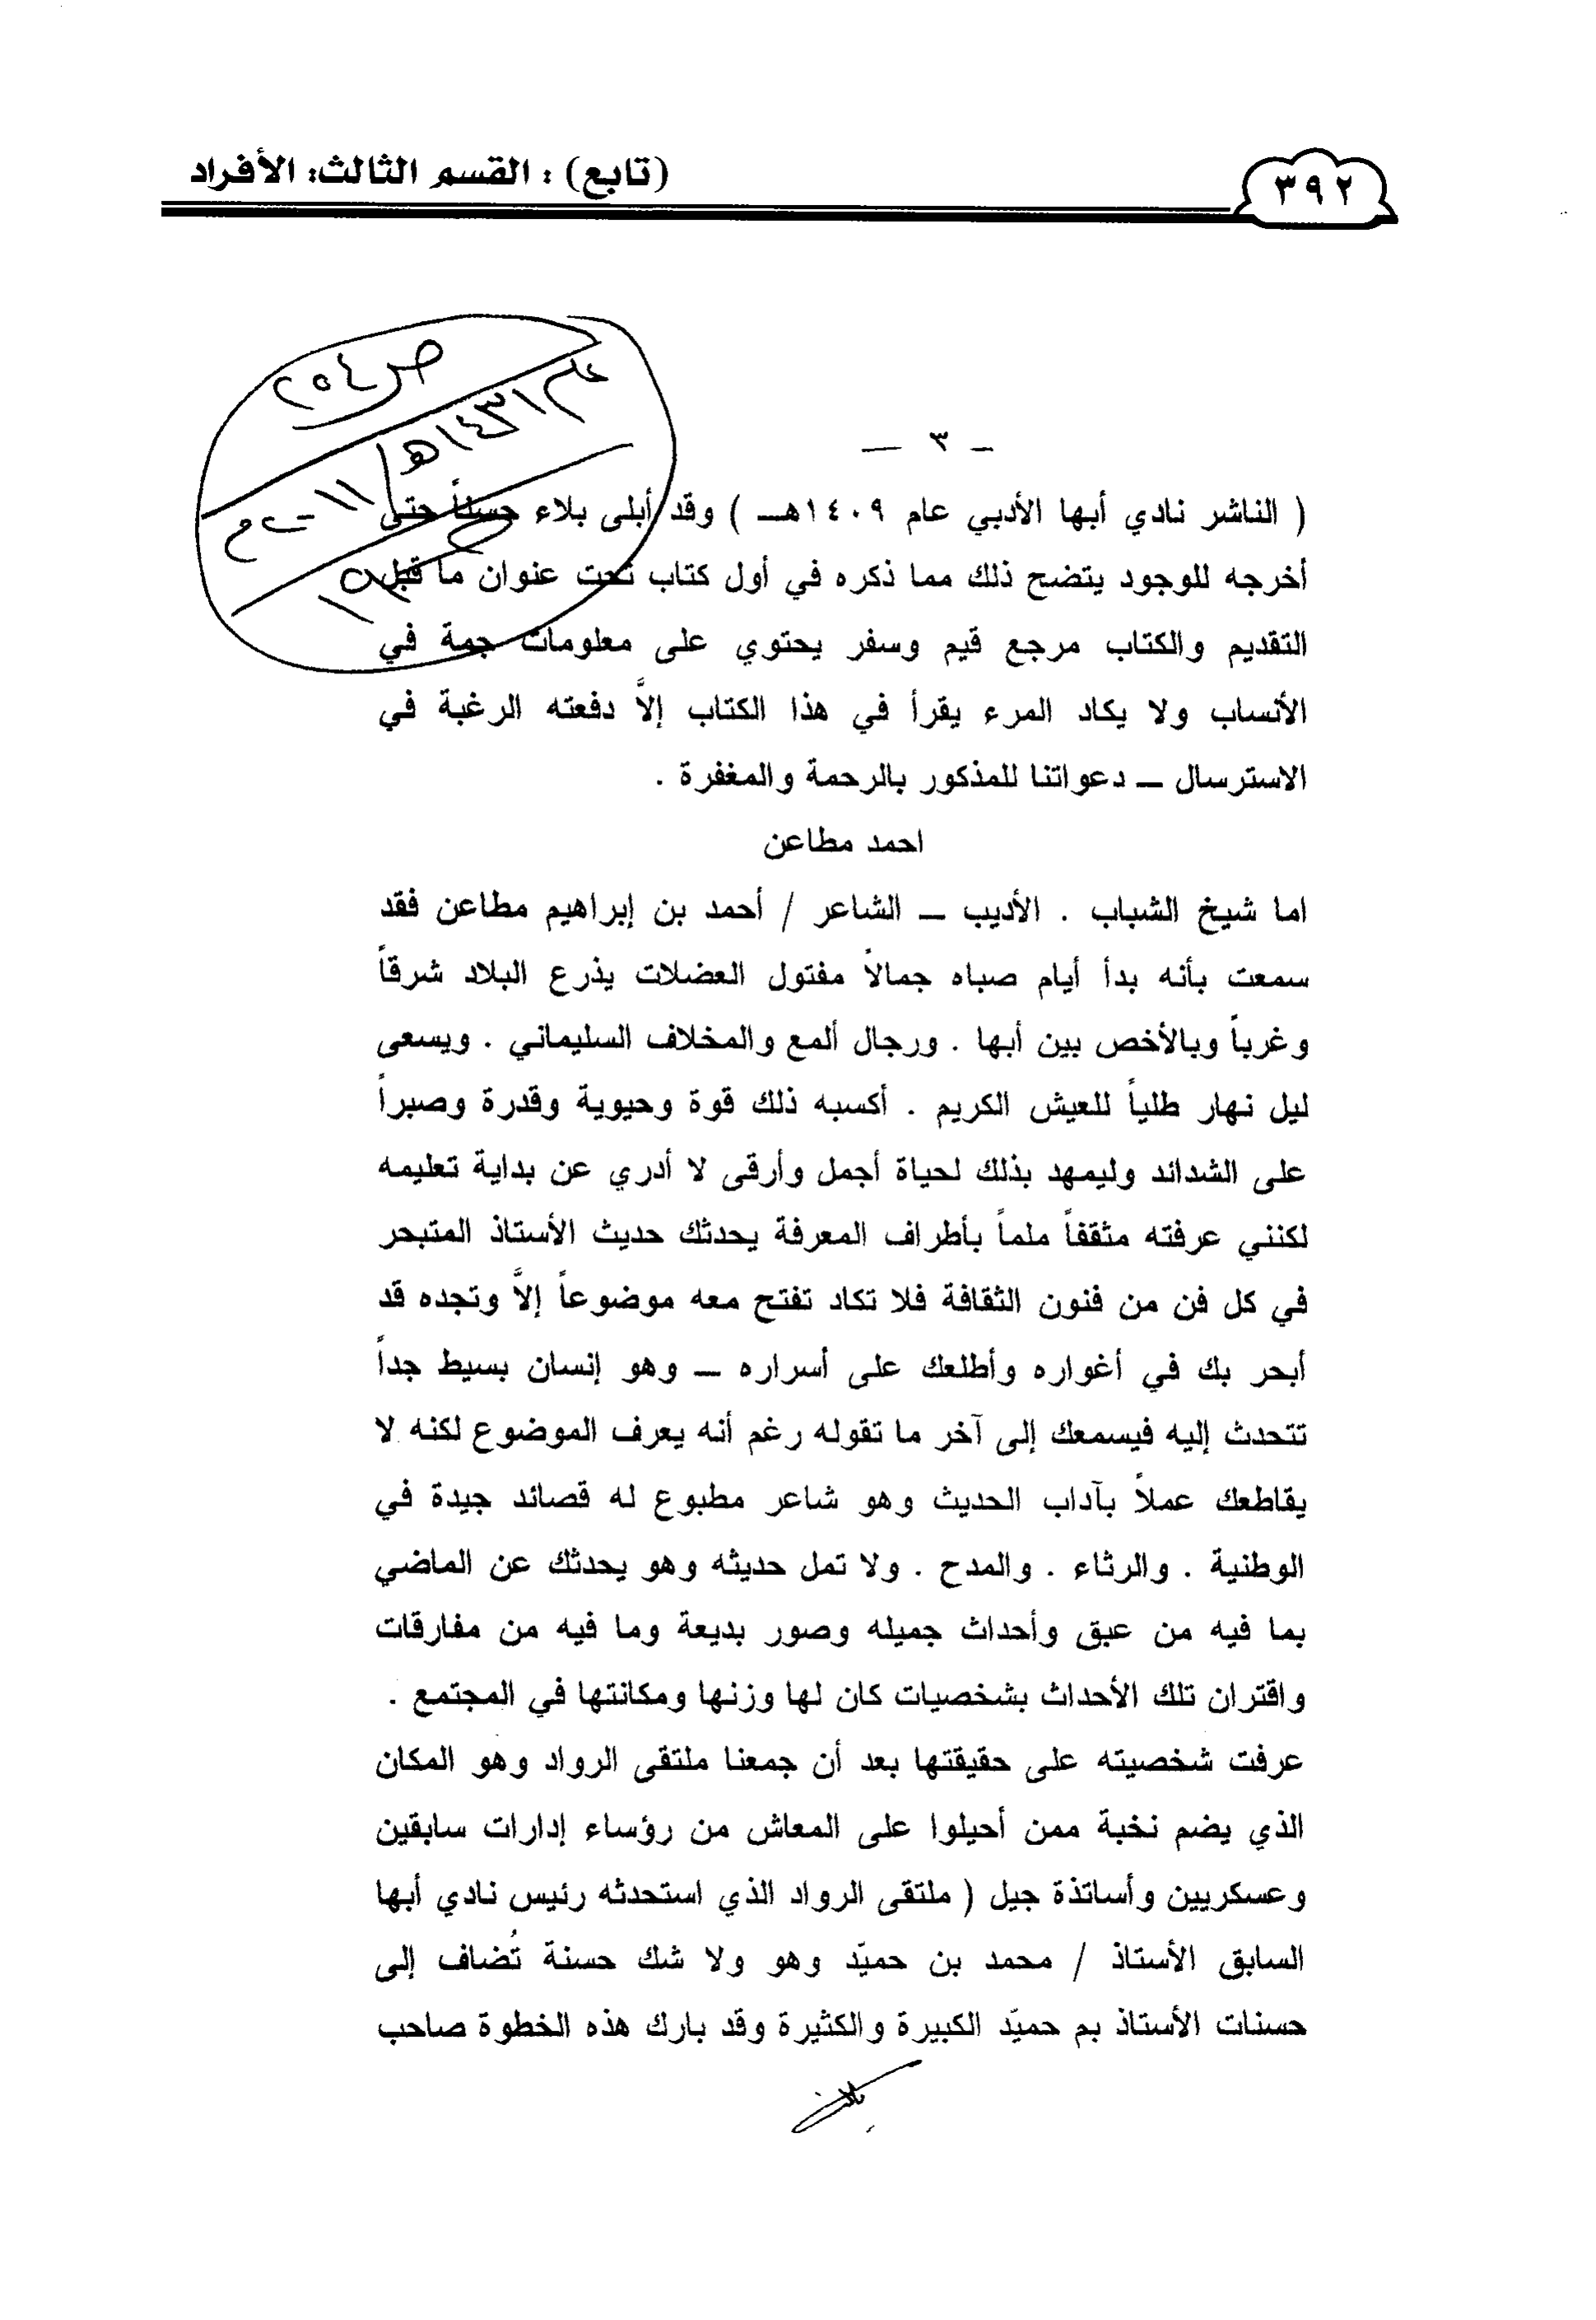 (تابع) : القسم الثالث: الأفراد
٣٩٢
ص ٢٥٤
١٤٣١هـ/
١١-٢م
– ٣ —
( الناشر نادي أبها الأدبي عام ١٤٠٩هـ ) وقد أبلى بلاء حسناً حتى
أخرجه للوجود يتضح ذلك مما ذكره في أول كتاب تحت عنوان ما قبل
التقديم والكتاب مرجع قيم وسفر يحتوي على معلومات جمة في
الأنساب ولا يكاد المرء يقرأ في هذا الكتاب إلاَّ دفعته الرغبة في
الاسترسال – دعواتنا للمذكور بالرحمة والمغفرة .
احمد مطاعن
اما شيخ الشباب . الأديب – الشاعر / أحمد بن إبراهيم مطاعن فقد
سمعت بأنه بدأ أيام صباه جمالاً مفتول العضلات يذرع البلاد شرقاً
وغرباً وبالأخص بين أبها . ورجال ألمع والمخلاف السليماني . ويسعى
ليل نهار طلباً للعيش الكريم . أكسبه ذلك قوة وحيوية وقدرة وصبراً
على الشدائد وليمهد بذلك لحياة أجمل وأرقى لا أدري عن بداية تعليمه
لكنني عرفته مثقفاً ملماً بأطراف المعرفة يحدثك حديث الأستاذ المتبحر
في كل فن من فنون الثقافة فلا تكاد تفتح معه موضوعاً إلاَّ وتجده قد
أبحر بك في أغواره وأطلعك على أسراره – وهو إنسان بسيط جداً
تتحدث إليه فيسمعك إلى آخر ما تقوله رغم أنه يعرف الموضوع لكنه لا
يقاطعك عملاً بآداب الحديث وهو شاعر مطبوع له قصائد جيدة في
الوطنية . والرثاء . والمدح . ولا تمل حديثه وهو يحدثك عن الماضي
بما فيه من عبق وأحداث جميله وصور بديعة وما فيه من مفارقات
واقتران تلك الأحداث بشخصيات كان لها وزنها ومكانتها في المجتمع .
عرفت شخصيته على حقيقتها بعد أن جمعنا ملتقى الرواد وهو المكان
الذي يضم نخبة ممن أحيلوا على المعاش من رؤساء إدارات سابقين
وعسكريين وأساتذة جيل ( ملتقى الرواد الذي استحدثه رئيس نادي أبها
السابق الأستاذ / محمد بن حميّد وهو ولا شك حسنة تُضاف إلى
حسنات الأستاذ بم حميّد الكبيرة والكثيرة وقد بارك هذه الخطوة صاحب